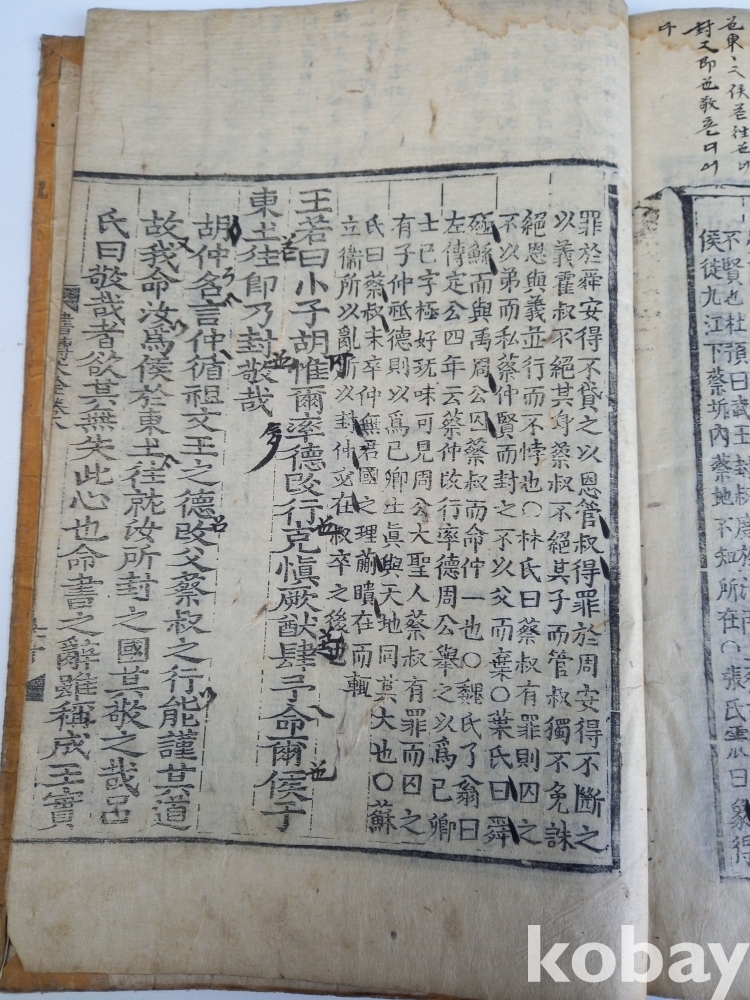 不賢也杜預曰武王封叔度於汝南
侯徙九江下蔡圻內蔡地不知所在〇張氏震曰象得
罪於舜安得不貸之以恩管叔得罪於周安得不斷之
以義霍叔不絕其身蔡叔不絕其子而管叔獨不免誅
絕恩與義並行而不悖也〇林氏曰蔡叔有罪則囚之
不以弟而私蔡仲賢而封之不以父而棄〇葉氏曰舜
殛鯀而與禹周公囚蔡叔而命仲一也〇魏氏了翁曰
左傳定公四年云蔡仲改行率德周公擧之以爲己卿
士己字極好玩味可見周公大聖人蔡叔有罪而囚之
有子仲祗德則以爲己卿士眞與天地同其大也〇蘇
氏曰蔡叔未卒仲無君國之理蒯聵在而輒
立衞所以亂所以封仲必在叔卒之後也
王若曰小子胡惟爾率德改行克愼厥猷肆予命爾侯于
東土往卽乃封敬哉
胡仲名言仲循祖文王之德改父蔡叔之行能謹其道
故我命汝爲侯於東土往就汝所封之國其敬之哉呂
氏曰敬哉者欲其無失此心也命書之辭雖稱成王實
書傳大全卷八
kobay